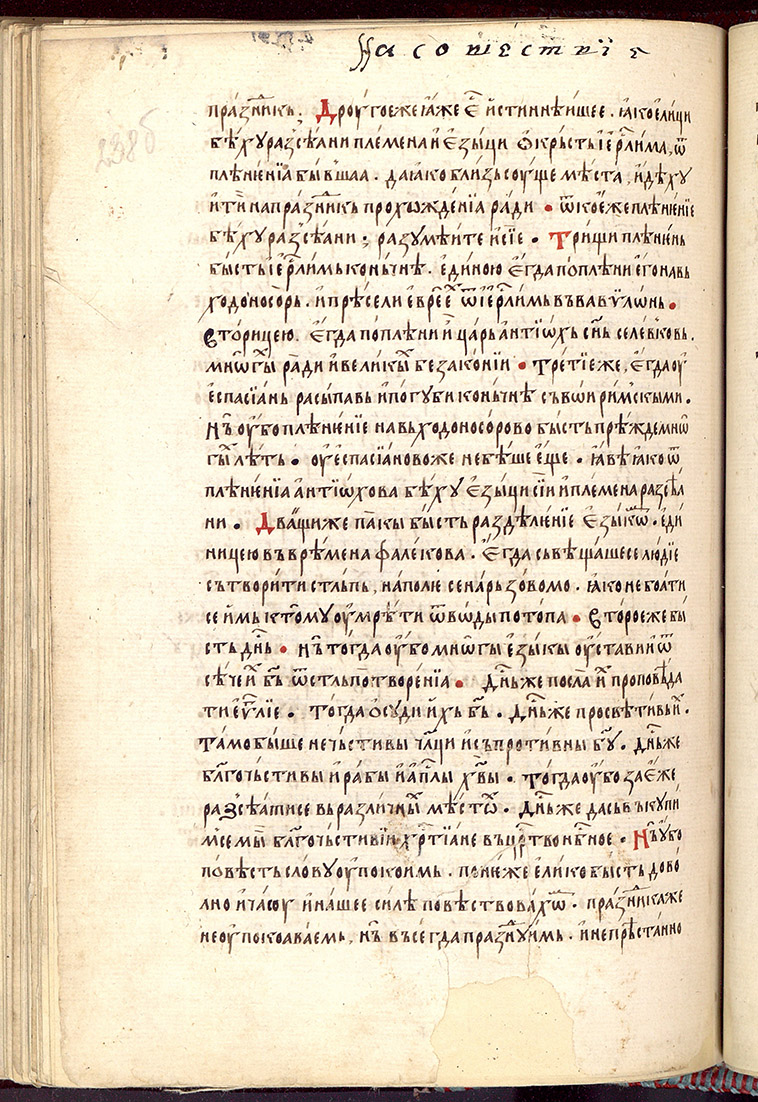 На сошествїе
238б
пра́здникъ. Дроугое же ꙗ́же є҆́ и҆стиннѣишее. ꙗ҆ко є҆лици
бѣхꙋ раз̾сѣани племена и҆ є҆зыци ѡ҆кр҃сть і҆єрⷭ҇лима, ѿ
плѣнєнїа бы́вшаа. да ꙗ҆ко близь соуще мѣста, и҆дѣхꙋ
и҆ тїи на праздникь прохожденїа ради • ѿ кое҆же плѣнєнїе
бѣхꙋ раз̾сѣани ; разꙋмѣите и҆ сїе • Трищи плѣнень
бысть і҆єрⷭ҇лимь конъчнѣ. є҆диною є҆гда поплѣни є҆го навь
ходоносорь. и҆ прѣсели е҆вреє ѿ і҆єрⷭ҇лимь въ вавѷлѡнь •
второицею. є҆гда поплѣни и҆ царь а҆нтїѡхь сн҃ь селевковь.
мнѡгы ради и҆ великы беззаконїи • трєтїе же, є҆гда оу
є҆спасїань расыпавь и҆ погꙋби конъчнѣ съ вѡи римскыми.
Нѫ оубо плѣнєнїе навьходоносорово бысть прѣжде мнѡ
гы лѣть • оуе҆спасїаново же не бѣше є҆ще • ꙗ҆вѣ ꙗ҆ко ѿ
плѣнєнїа а҆нтїѡхова бѣхꙋ є҆зыци сїи и҆ племена разсѣа
ни • Два́щи же пакы бысть раздѣлєнїе є҆зыкѡ • є҆ди
ницею въ врѣмена фалекова. є҆гда съвѣщаше се людїе
сътворити стльпь, на полїе сенарь зовомо. ꙗ҆ко не боꙗти
се и҆мь ктомꙋ оу҆мрѣти ѿ воды потопа • второе же бы
сть дн҃ь • нъ тогда оубо мнѡгы є҆зыкы оуставии ѿ
сѣче и҆ бъ ѿ стльпотворенїа • дн҃ь же посла и҆ проповѣда
ти є҆ѵⷢ҇лїе • тогда ѡ҆сꙋди и҆хь бъ • дн҃ь же просвѣтивыи •
тамо быше нечьстивы чл҃ци и҆ съпротивны б҃ꙋ • дн҃ь же
благочьстивы и҆ рабы и҆ а҆плы хв҃ы • тогда оубо за є҆же
раз̾сѣати се вь различны мѣстѡ • дн҃ь же да съвькꙋпи
мсе мы благочьстивїи хр҃тїане въ црⷭ҇тво нбⷭ҇ное • Нъ ꙋбо
повѣсть слову оупокоимь. понєже є҆лико бысть дово
лно и҆ часоу и҆ нашее силѣ повѣствовахѡ • праздника же
не оупокоаваемь, нъ въсегда празднꙋимь. и҆ непрѣстанно